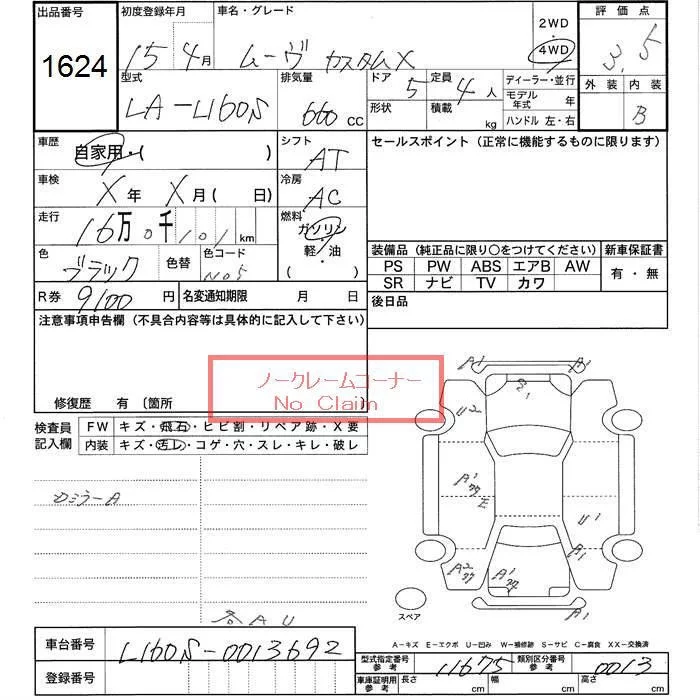 出品番号 初度登録年月 車名・グレード 2WD 評価点
1624 15年4月 ムーヴ カスタムX 4WD 3.5
型式 排気量 ドア 5 定員 4人 ディーラー・並行 外装 内装
LA-L160S 660 cc 形状 積載 kg モデル年式 年 B
ハンドル 左・右
車歴 自家用・( ) シフト AT セールスポイント(正常に機能するものに限ります)
車検 X年 X月( 日) 冷房 AC
走行 16万0千101km 燃料 ガソリン・軽・油 ( )
色 ブラック 色替 色コード No5
装備品(純正品に限り○をつけてください) 新車保証書
PS PW ABS エアB AW 有・無
SR ナビ TV カワ
R券 9100円 名変通知期限 月 日 後日品
注意事項申告欄(不具合内容等は具体的に記入して下さい)
ノークレームコーナー
No Claim
修復歴 有〔箇所 〕
検査員記入欄 FW キズ・飛石・ヒビ割・リペア跡・X要
内装 キズ・汚レ・コゲ・穴・スレ・キレ・破レ
A1 A1
E1
U2
A1
E
U1
A1
A2 A1
A1
スペア
各AU
A-キズ E-エクボ U-凹み W-補修跡 S-サビ C-腐食 XX-交換済
車台番号 L160S-0013692 型式指定番号 参考 11675 類別区分番号 参考 0013
登録番号 車庫証明用 参考 長さ cm 幅 cm 高さ cm